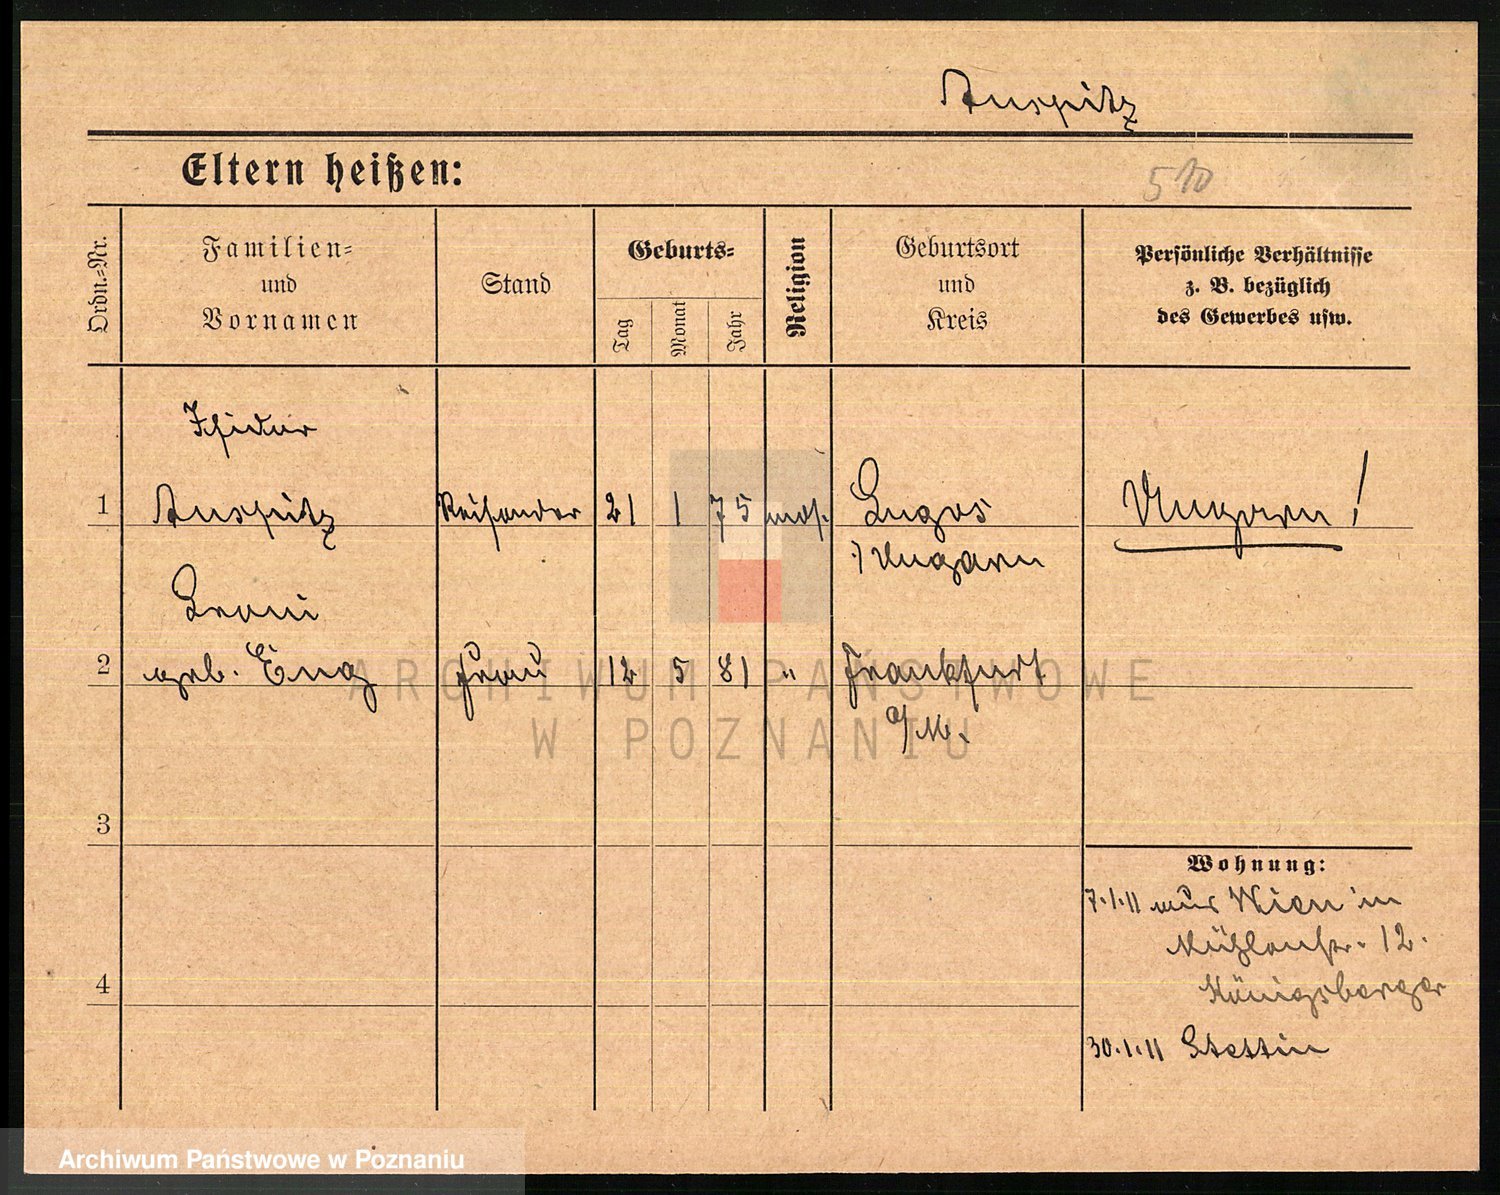 Auspitz
Eltern heißen:
510
Ordn.-Nr.
Familien-
und
Vornamen
Stand
Geburts-
Tag
Monat
Jahr
Religion
Geburtsort
und
Kreis
Persönliche Verhältnisse
z. B. bezüglich
des Gewerbes usw.
Isidor
1 Auspitz Reisender 21 1 75 mos. Lugos Ungarn!
Ungarn
2 geb. Frau 12 5 81 " Frankfurt
a/M.
3
Wohnung:
7.1.11 aus Wien in
Mühlenstr. 12.
4
Königsberger
30.1.11 Stettin
ARCHIWUM PAŃSTWOWE
W POZNANIU
Archiwum Państwowe w Poznaniu